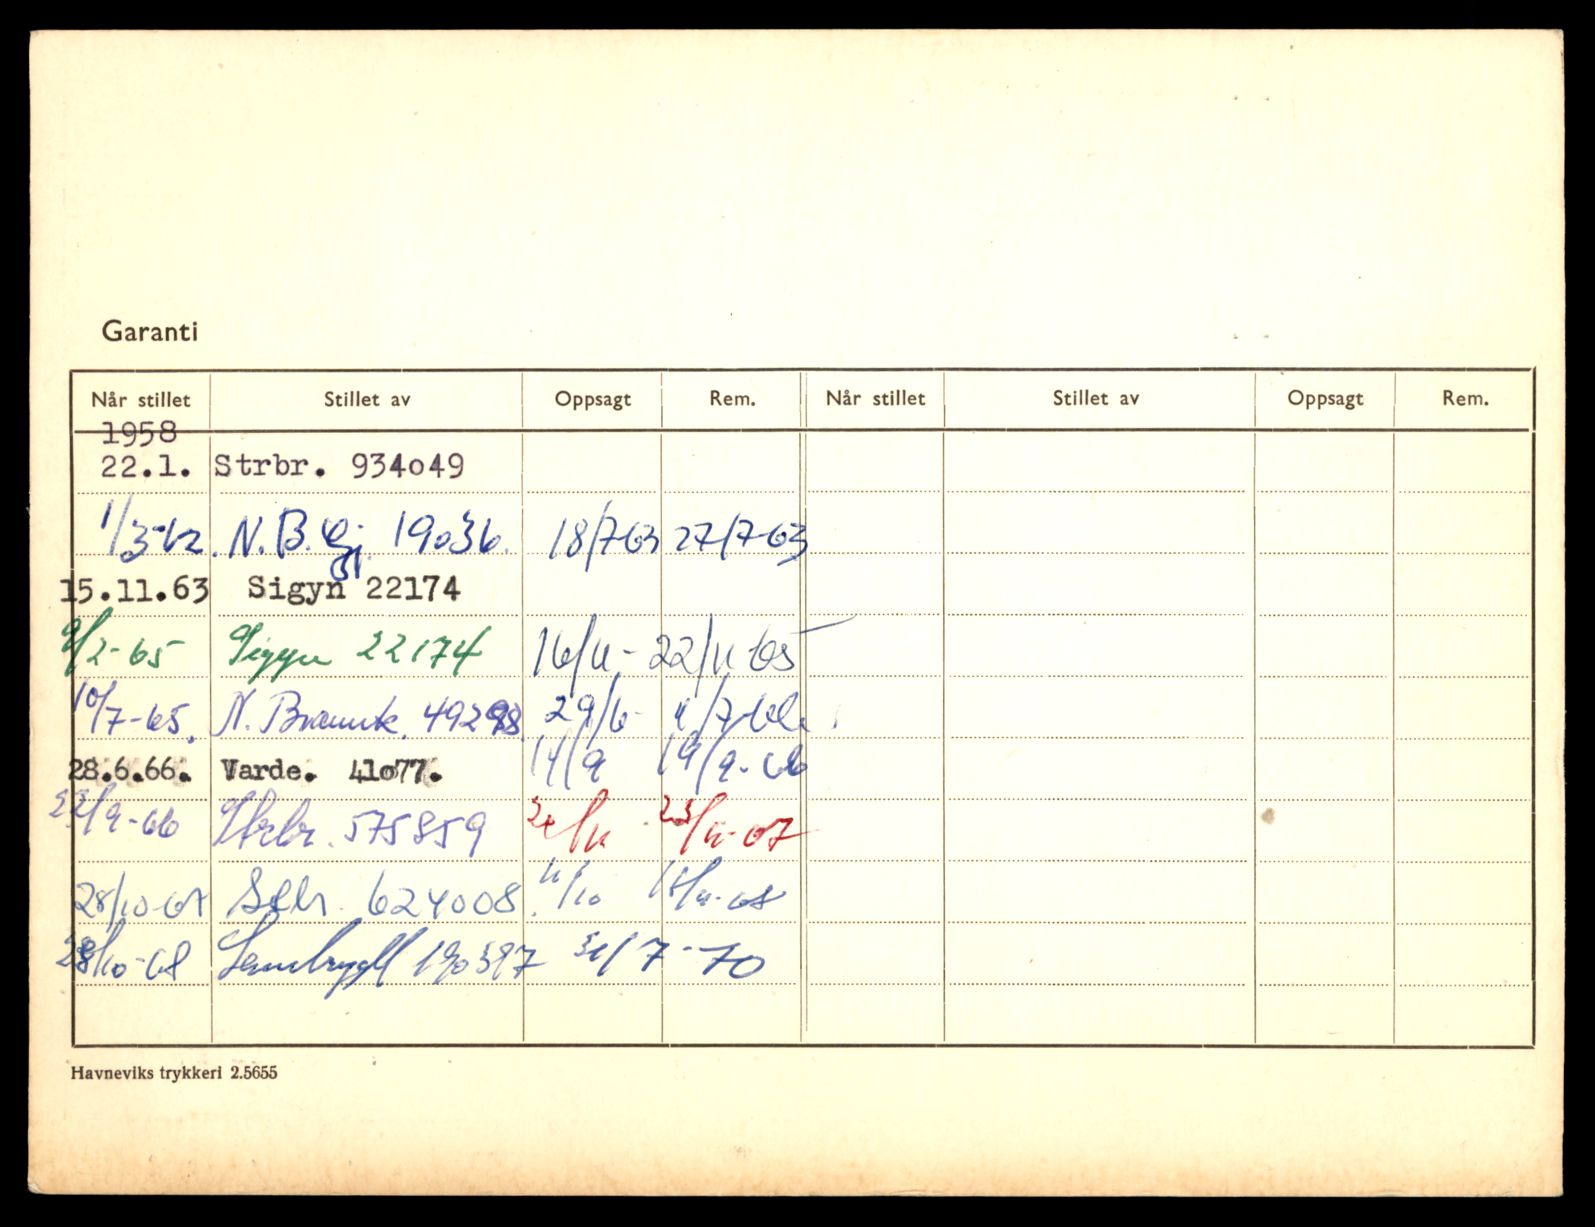 Garanti
Når stillet Stillet av Oppsagt Rem. Når stillet Stillet av Oppsagt Rem.
1958
22.1. Strbr. 934o49
1/3-62. N.B.Gj. 19036. 18/7-63 27/7-63
15.11.63 Sigyn 22174
9/2-65 Sigyn 22174 16/11- 22/11-65
10/7-65. N. Brannk. 49298 29/6- 4/7-66
28.6.66. Varde. 41o77. 14/9 19/9-66
22/9-66 Strbr. 575859 23/11-67
28/10-67 624008 /10
28/10-68 190397 31/7-70
Havneviks trykkeri 2.5655